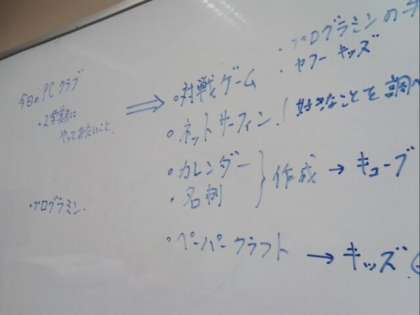 今日のPCクラブ
・2学期に
やってみたいこと
・プログラミン.
⇒
・対戦ゲーム
・プログラミンの
・ヤフーキッズ
・ネットサーフィン! 好きなことを調べ
・カレンダー
・名刺
} 作成 → キューブ
・ペーパークラフト → キッズ